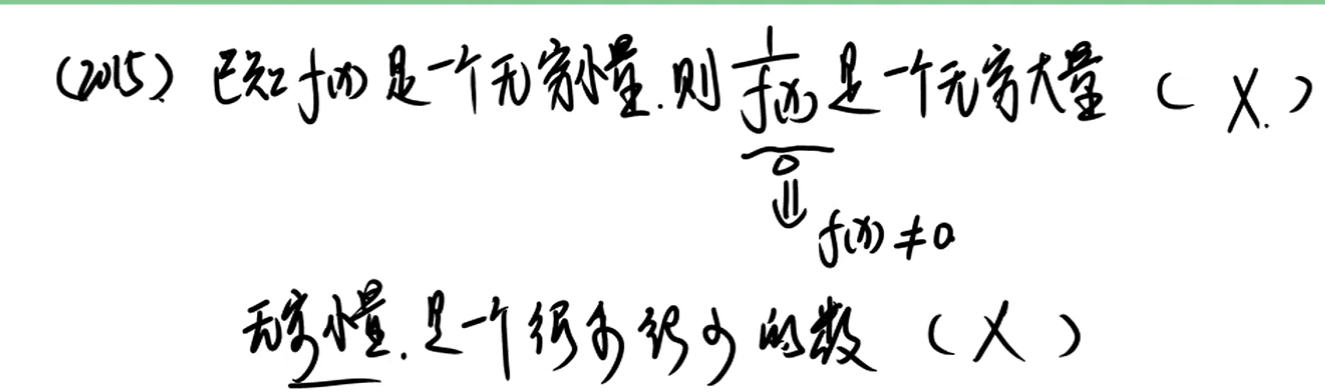 (2015) 已知 f(x) 是一个无穷小量.则 1/f(x) 是一个无穷大量 ( X. )
0
⇓
f(x) ≠ 0
无穷小量.是一个很小很小的数 ( X )